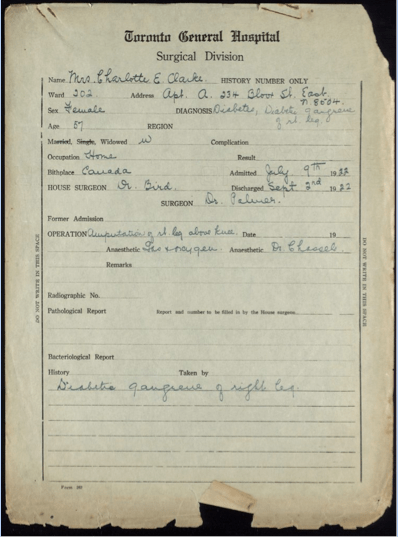 Toronto General Hospital
Surgical Division
Name Mrs. Charlotte E. Clarke. HISTORY NUMBER ONLY
Ward 202 Address Apt. A. 234 Bloor St. East
N. 8504.
Sex Female DIAGNOSIS Diabetes, Diabetic gangrene
of rt leg.
Age 57 REGION
Married, Single, Widowed W Complication
Occupation Home Result
Birthplace Canada Admitted July 9TH 1922
HOUSE SURGEON Dr. Bird. Discharged Sept 2nd 1922
SURGEON Dr. Palmer.
Former Admission
OPERATION Amputation of rt leg above knee. Date 19
Anaesthetic Gas & oxygen. Anaesthetic Dr.
Remarks
Radiographic No.
Pathological Report Report and number to be filled in by the House surgeon
Bacteriological Report
History Taken by
Diabetic gangrene of right leg.
Form
DO NOT WRITE IN THIS SPACE
DO NOT WRITE IN THIS SPACE